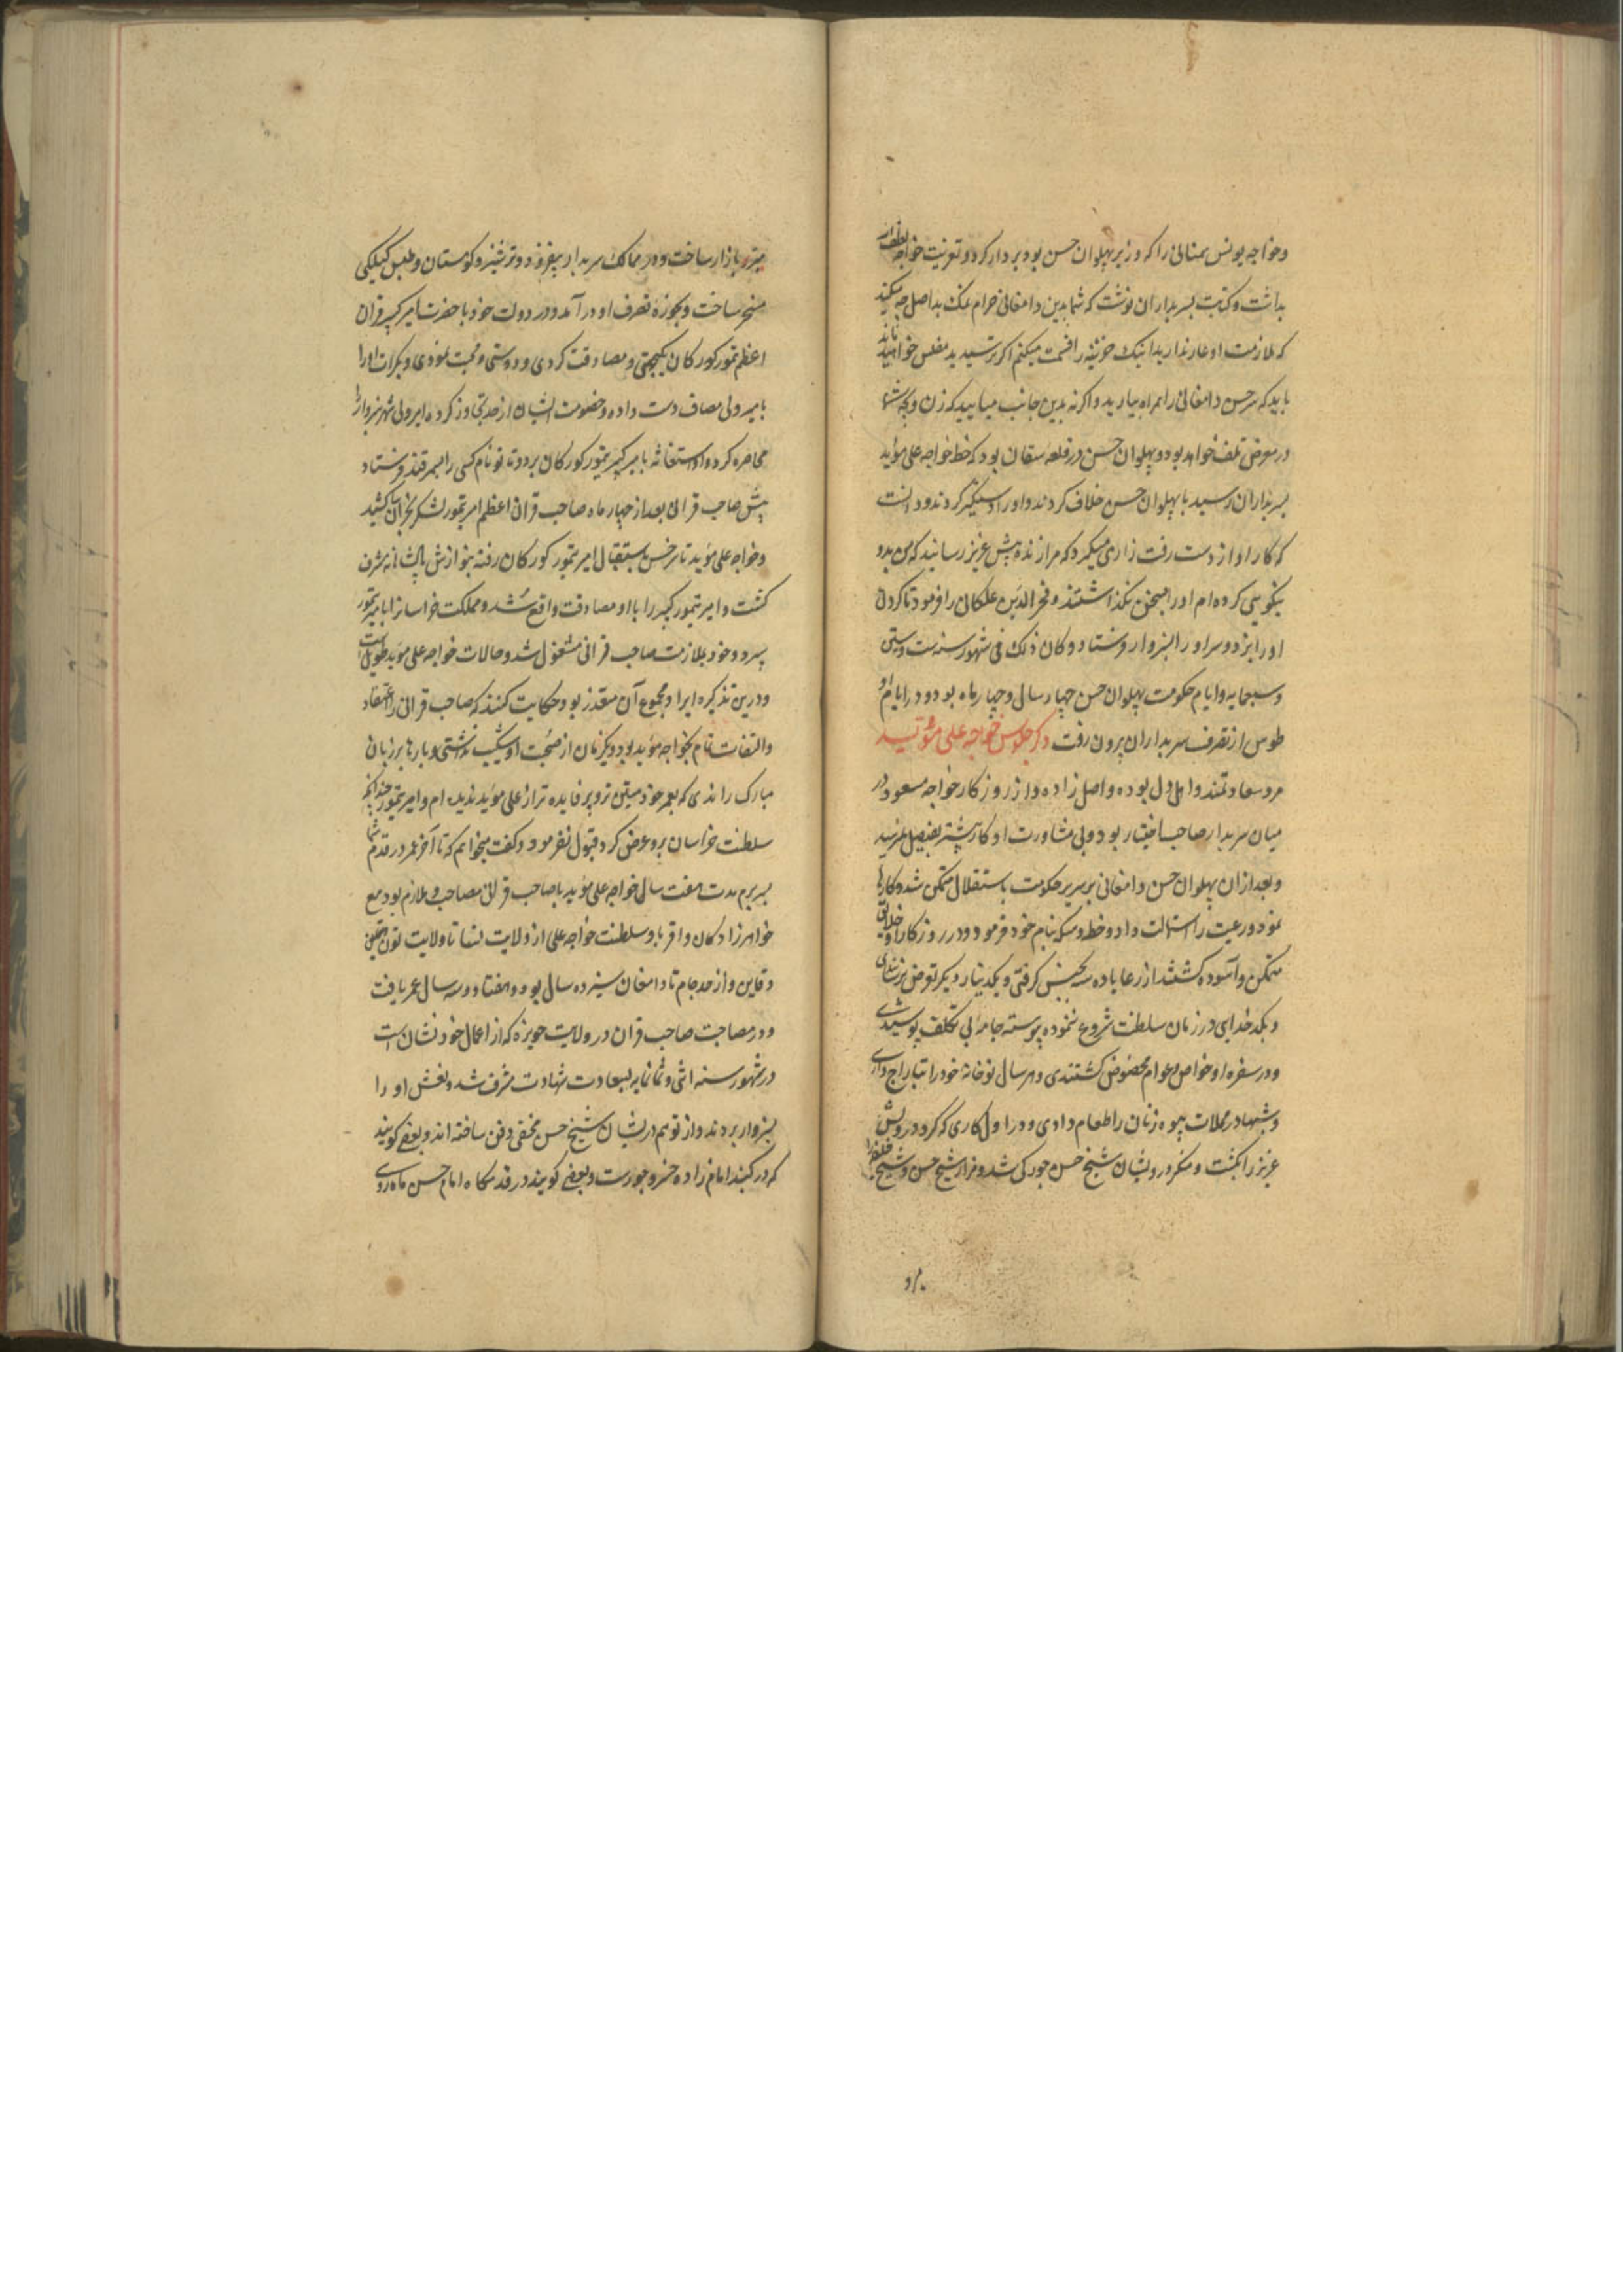 وخواجه یونس سمنانی را که وزیر پهلوان حسن بود بر دار کرد و تعزیت خواجه لطف الله
بداشت و کتبت بسربداران نوشت که شما بدین دامغانی حرام نمک بداصل چه میکنید
که ملازمت او عار ندارید اینک خزینه را قسمت میکنم اگر نرسیدید مفلس خواهید ماند
باید که سر حسن دامغانی را همراه بیارید و اگر نه بدین جانب میایید که زن و بچه شما
در معرض تلف خواهد بود و پهلوان حسن در قلعه سقان بود که خط خواجه علی موید
بسربداران رسید با پهلوان حسن خلاف کردند و او را دستگیر کردند و دانست
که کار او از دست رفت زاری میکرد که مرا زنده پیش عزیز رسانید که من بدو
نیکویی کرده ام او را بسخن نگذاشتند و فخر الدین علکان را فرمود تا گردن
او را بزد و سر او را بسبزوار فرستاد و کان ذلک فی شهور سنه ست وستین
وسبعمایه و ایام حکومت پهلوان حسن چهار سال و چهار ماه بود و در ایام او
طوس از تصرف سربداران بیرون رفت ذکر جلوس خواجه علی موئید
مرد سعادتمند و اهل دل بوده و اصل زاده و از روزگار خواجه مسعود در
میان سربدار صاحب اختیار بود و بی مشاورت او کار بیشتر بفیصل نمیرسید
و بعد از آن پهلوان حسن دامغانی بر سریر حکومت باستقلال متمکن شد و کارها
نمود و رعیت را استمالت داد و خطبه و سکه بنام خود فرمود و در روزگار او خلایق
متمکن و آسوده گشتند از رعایا ده سه بجنس گرفتی و یکدینار دیگر تعرض نرسانیدی
و بکدخدایی در زمان سلطنت شروع ننموده پیوسته جامه بی تکلف پوشیدی
و در سفره او خواص و عوام محضوض گشتندی و هر سال نو خانه خود را بتاراج دادی
و شبها در محلات بیوه زنان را طعام دادی و در اول کاری که کرد درویش
عزیز را بکشت و منکر درویشان شیخ حسن جوری شد و مزار شیخ حسن و شیخ خلیفه را
مبرز
مبرز بازار ساخت و در ممالک سربدار بیفزود و ترشیز و کوهستان و طبس گیلکی
مسخر ساخت و بحوزه تصرف او در آمد و در دولت خود با حضرت امیر کبیر قران
اعظم تمور کورکان یکجهتی و مصادقت کردی و دوستی و محبت نمودی و بکرات او را
با میر ولی مصاف دست داده و خصومت ایشان از حد تجاوز کرده امیر ولی شهر سبزوار را
محاصره کرد و او استغاثه با میر کبیر تیمور کورکان برد و تا تو نام کسی را بسمرقند فرستاد
پیش صاحب قرانی بعد از چهار ماه صاحب قرانی اعظم امیر تیمور لشکر بخراسان کشید
و خواجه علی موید تا سرخس باستقبال امیر تیمور کورکان رفته بنوازش پادشاهانه مشرف
گشت و امیر تیمور کبیر را با او مصادقت واقع شد و مملکت خراسانرا بامیر تیمور
سپرد و خود بملازمت صاحب قرانی مشغول شد و حالات خواجه علی موید طویل است
و درین تذکره ایراد مجموع آن متعذر بود حکایت کنند که صاحب قرانی را اعتقاد
و التفات تمام بخواجه موید بود و یکزمان از صحبت او شکیب نداشتی و بارها بر زبان
مبارک راندی که بعمر خود متین تر و پر فایده تر از علی موید ندیده ام و امیر تیمور چندانکه
سلطنت خراسان برو عرض کرد قبول نفرمود و گفت میخواهم که تا آخر عمر در قدم شما
بسر برم مدت هفت سال خواجه علی موید با صاحب قرانی مصاحب و ملازم بود مع
خواهرزادگان و اقربا و سلطنت خواجه علی از ولایت نسا تا ولایت تون
و قاین و از حد جام تا دامغان سیزده سال بود و هفتاد و سه سال عمر یافت
و در مصاحبت صاحب قران در ولایت حویزه که از اعمال خوزستان است
در شهور سنه اثنی و ثمانمایه بسعادت شهادت مشرف شد و نعش او را
بسبزوار بردند و از توهم درویشان شیخ حسن مخفی دفن ساخته اند و بعضی گویند
که در گنبد امامزاده خسرو جورست و بعضی گویند در قدمگاه امام حسن ماه روی